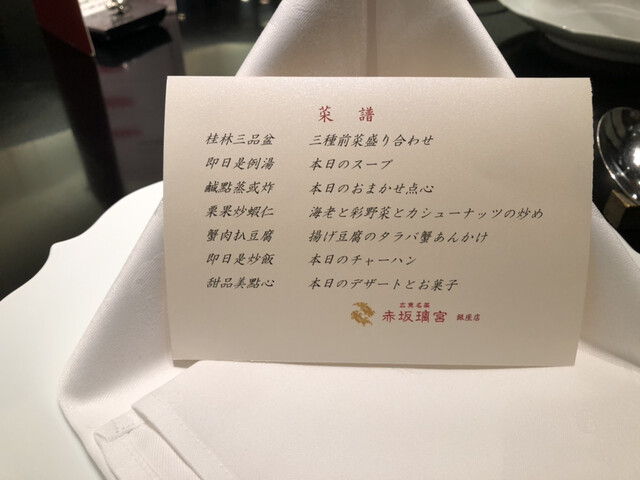 菜譜
桂林三品盆 三種前菜盛り合わせ
即日是例湯 本日のスープ
鹹點蒸或炸 本日のおまかせ点心
栗果炒蝦仁 海老と彩野菜とカシューナッツの炒め
蟹肉扒豆腐 揚げ豆腐のタラバ蟹あんかけ
即日是炒飯 本日のチャーハン
甜品美點心 本日のデザートとお菓子
広東名菜
赤坂璃宮 銀座店